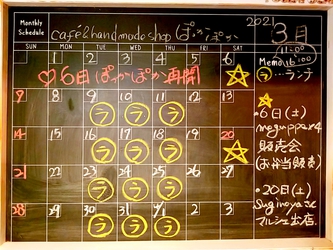 Monthly Schedule
café & handmade shop ぽかぽか
2021 3月
SUN MON TUE WED THU FRI SAT
1 2 3 4 5 6
♡6日ぽかぽか再開
7 8 9 10 11 12 13
ラ ラ ラ
14 15 16 17 18 19 20
ラ ラ ラ
21 22 23 24 25 26 27
ラ ラ ラ
28 29 30 31 4/1 2 3
ラ ラ ラ
11:00
Memo 16:00
ラ…ランチ
•6日(土)
販売会
(お弁当販売)
•20日(土)
Suginoya's
マルシェ出店